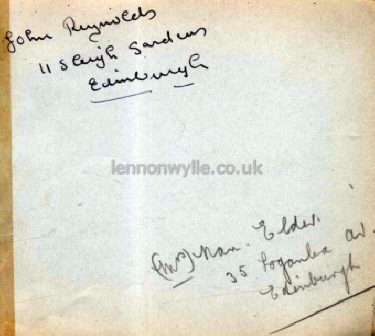 John Reynolds
11 Sleigh Gardens
Edinburgh
lennonwylie.co.uk
(Mrs) Nan. Elder.
35 Loganlea Av.
Edinburgh